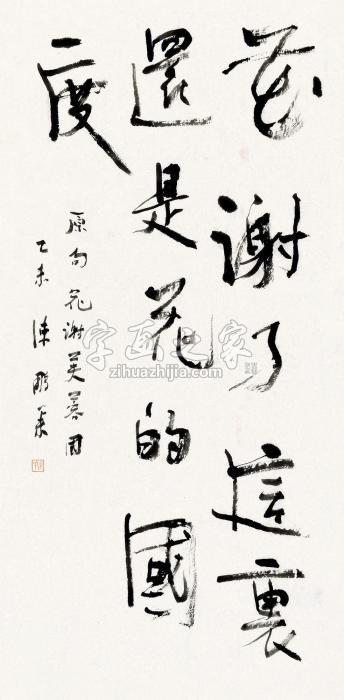 花謝了這裏
還是花的國
度
原句花謝芙蓉國
乙未陳鵬举
字画之家
zihuazhijia.com